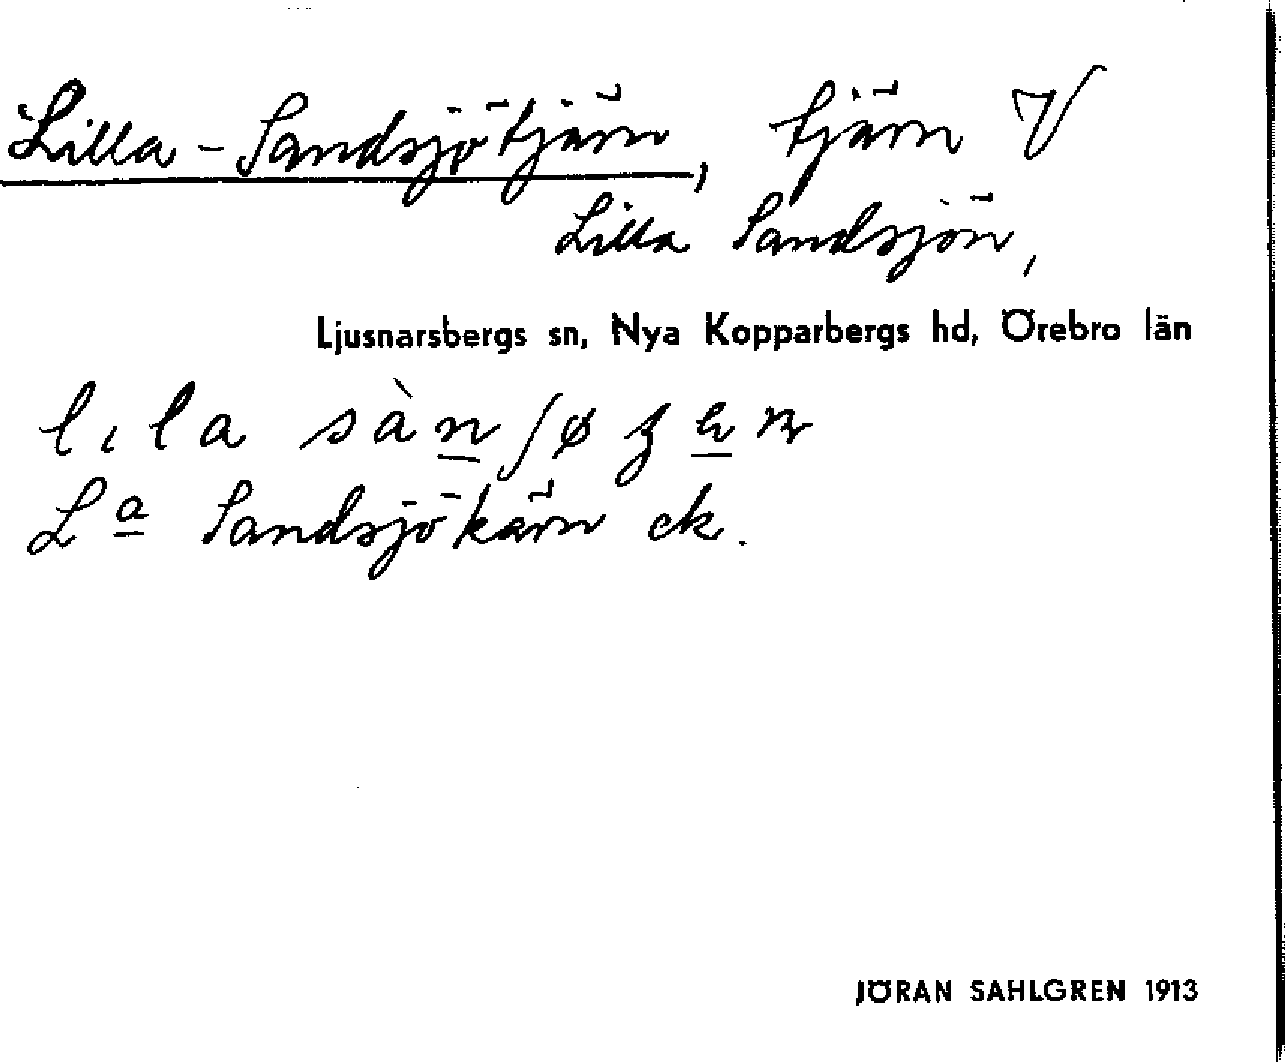 Lilla-Sandsjötjärn, tjärn V
Lilla Sandsjön,
Ljusnarsbergs sn, Nya Kopparbergs hd, Örebro län
Lª Sandsjökärn ek.
JÖRAN SAHLGREN 1913